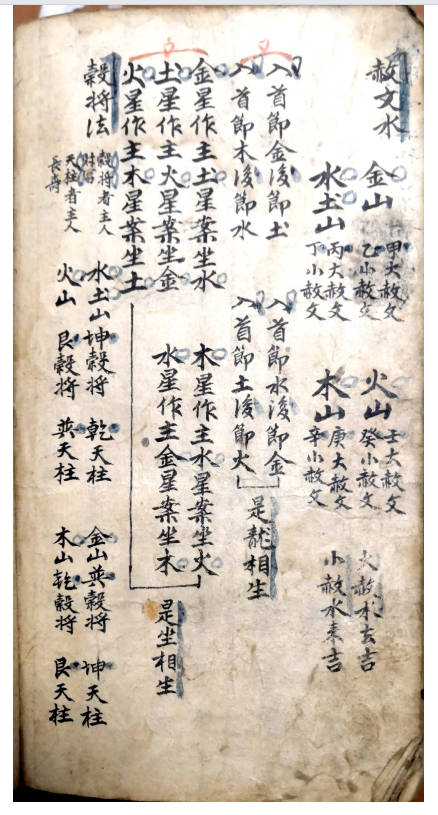 赦文水
金山 甲大赦文
乙小赦文
火山 壬大赦文
癸小赦文
大赦水去吉
水土山 丙大赦文
丁小赦文
木山 庚大赦文
辛小赦文
小赦水来吉
入首節金後節土
入首節水後節金
入首節木後節水
入首節土後節火
是龍相生
金星作主土星案坐水
木星作主水星案坐火
土星作主火星案坐金
水星作主金星案坐木
火星作主木星案坐土
是坐相生
穀将法
穀将者主人
財富
天柱者主人
長壽
水土山 坤穀将 乾天柱
金山巽穀将 坤天柱
火山 艮穀将 巽天柱
木山乾穀将 艮天柱